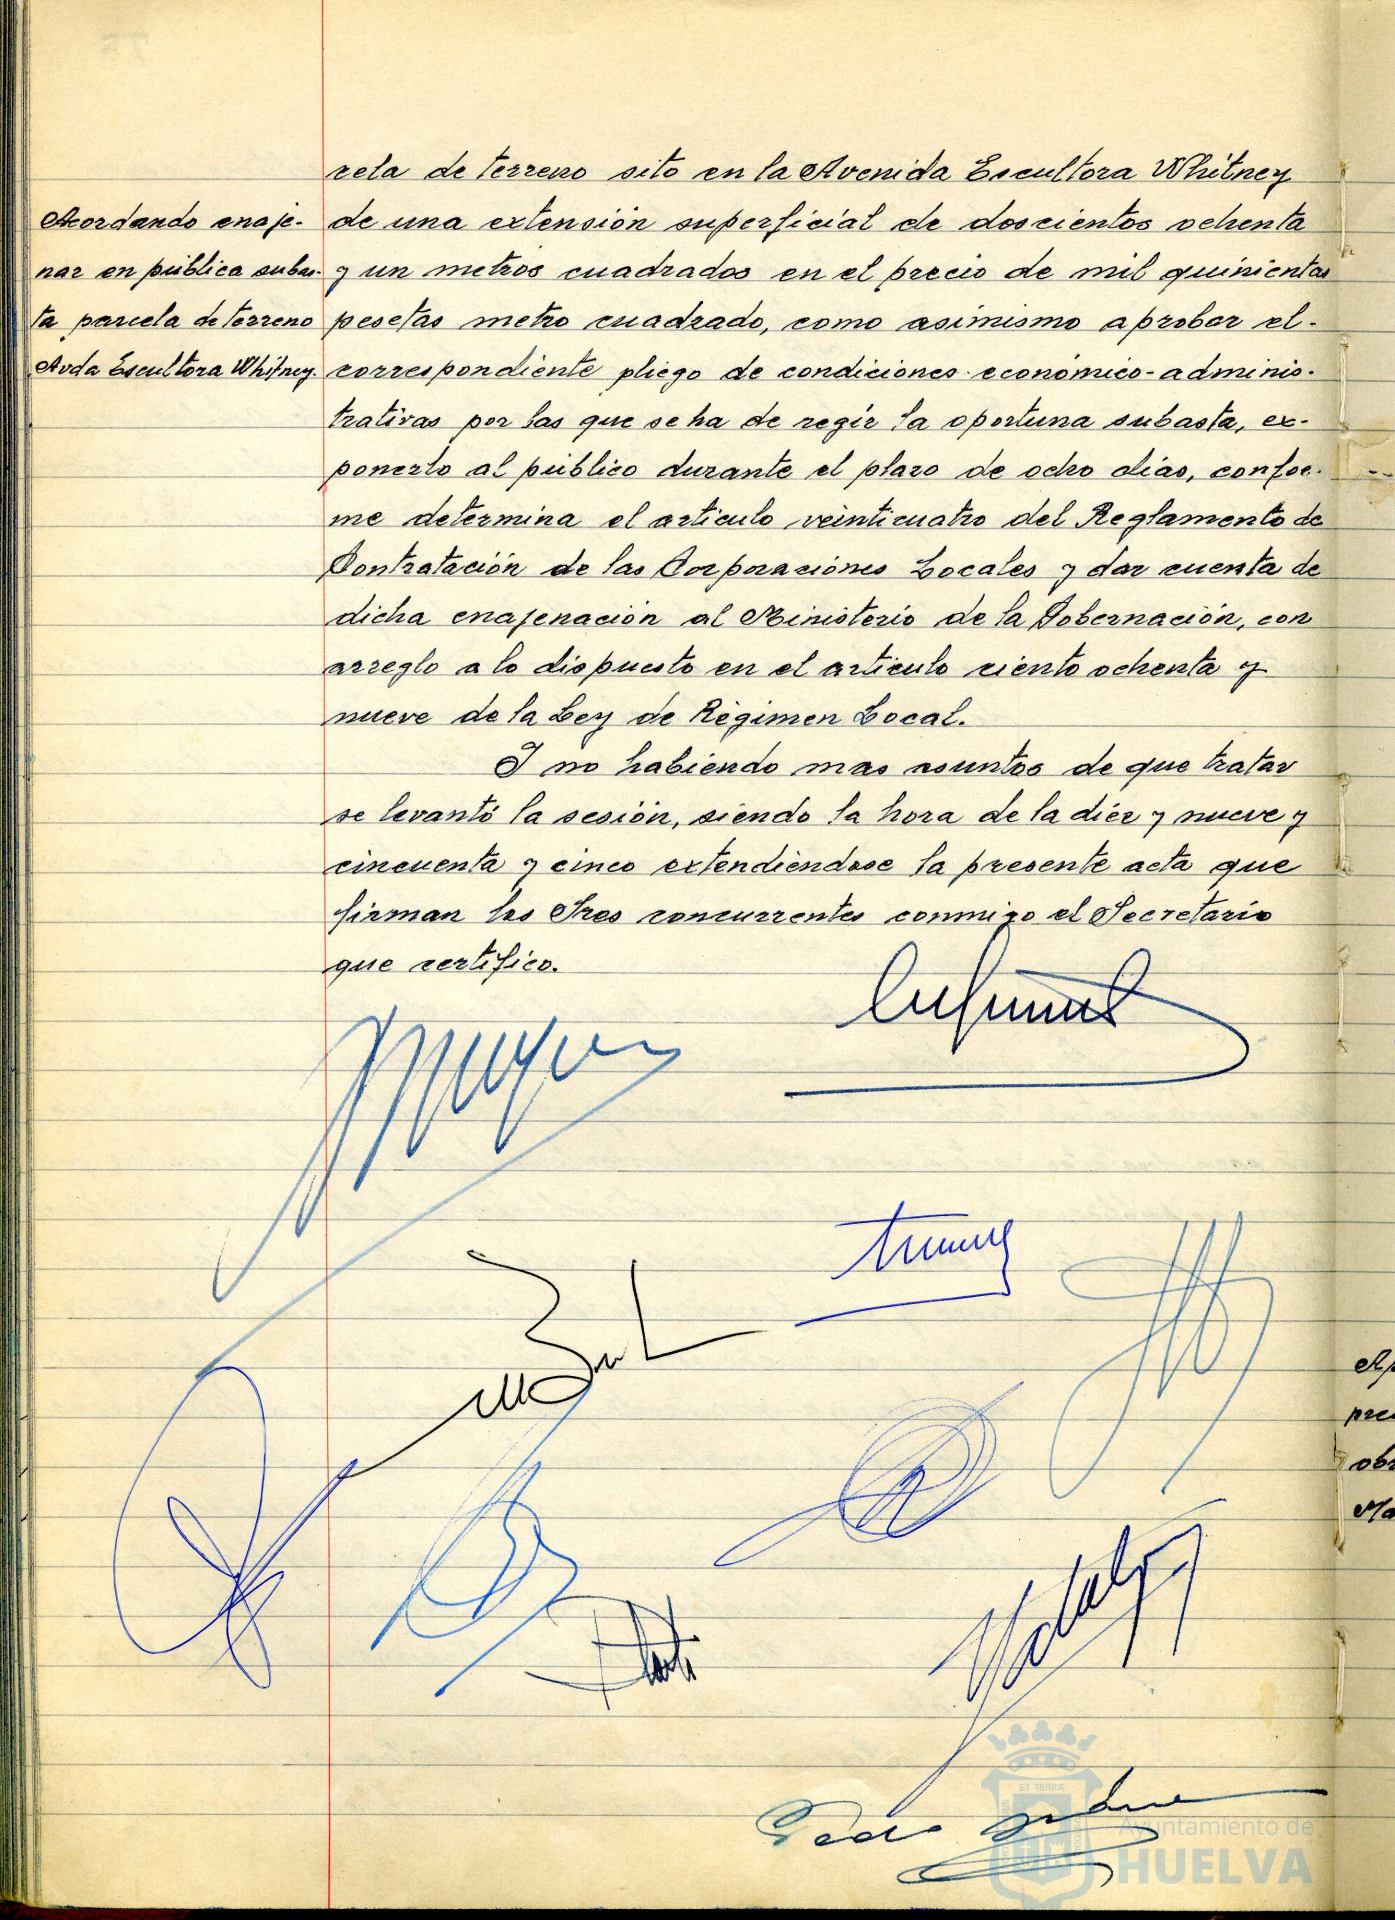 cela de terreno sito en la Avenida Escultora Whitney
Acordando enaje-
nar en pública subas-
ta parcela de terreno
Avda Escultora Whitney.
de una extensión superficial de doscientos ochenta
y un metros cuadrados en el precio de mil quinientas
pesetas metro cuadrado, como asimismo aprobar el
correspondiente pliego de condiciones económico-adminis-
trativas por las que se ha de regir la oportuna subasta, ex-
ponerlo al público durante el plazo de ocho días, confor-
me determina el artículo veinticuatro del Reglamento de
Contratación de las Corporaciones Locales y dar cuenta de
dicha enajenación al Ministerio de la Gobernación, con
arreglo a lo dispuesto en el artículo ciento ochenta y
nueve de la Ley de Régimen Local.
Y no habiendo mas asuntos de que tratar
se levantó la sesión, siendo la hora de la diez y nueve y
cincuenta y cinco extendiéndose la presente acta que
firman los Sres concurrentes conmigo el Secretario
que certifico.
Ap
pre
obr
Ma
Ayuntamiento de
HUELVA